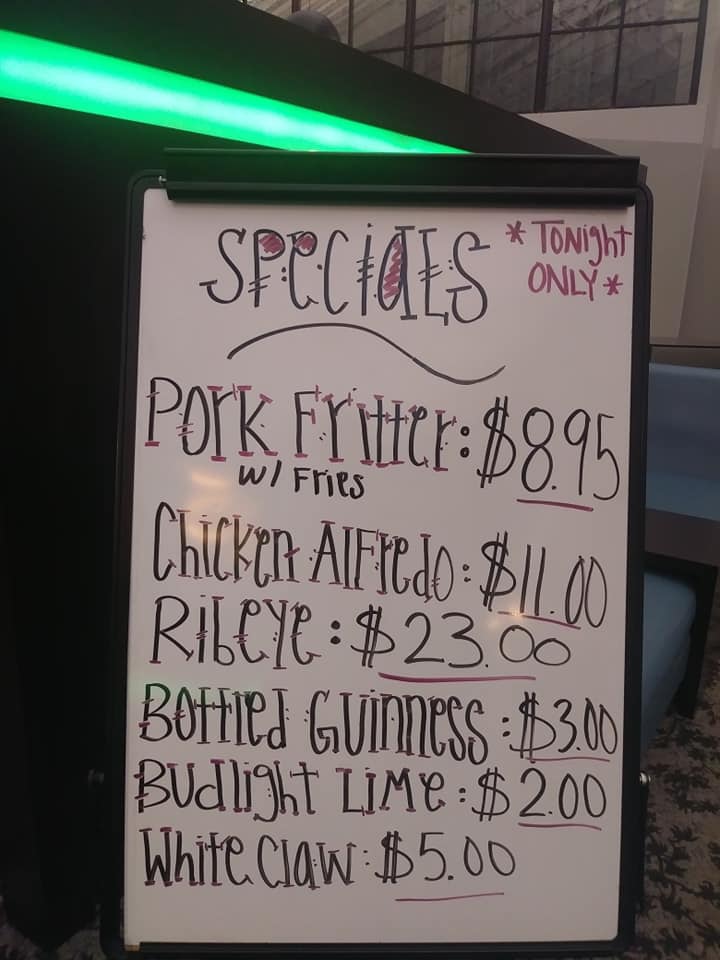 SPECIALS
* TONight
ONLY *
Pork Fritter: $8.95
w/ Fries
Chicken Alfredo: $11.00
Ribeye: $23.00
Bottled Guinness: $3.00
Budlight Lime: $2.00
White Claw: $5.00